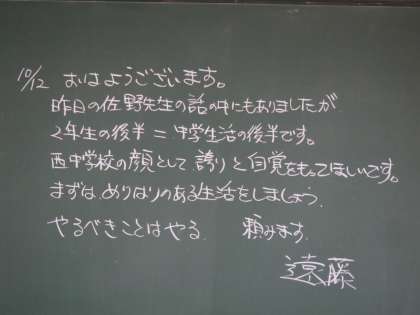 10/12 おはようございます。
昨日の佐野先生の話の中にもありましたが
2年生の後半=中学生活の後半です。
西中学校の顔として誇りと自覚をもってほしいです。
まずは、めりはりのある生活をしましょう.
やるべきことはやる. 頼みます.
遠藤